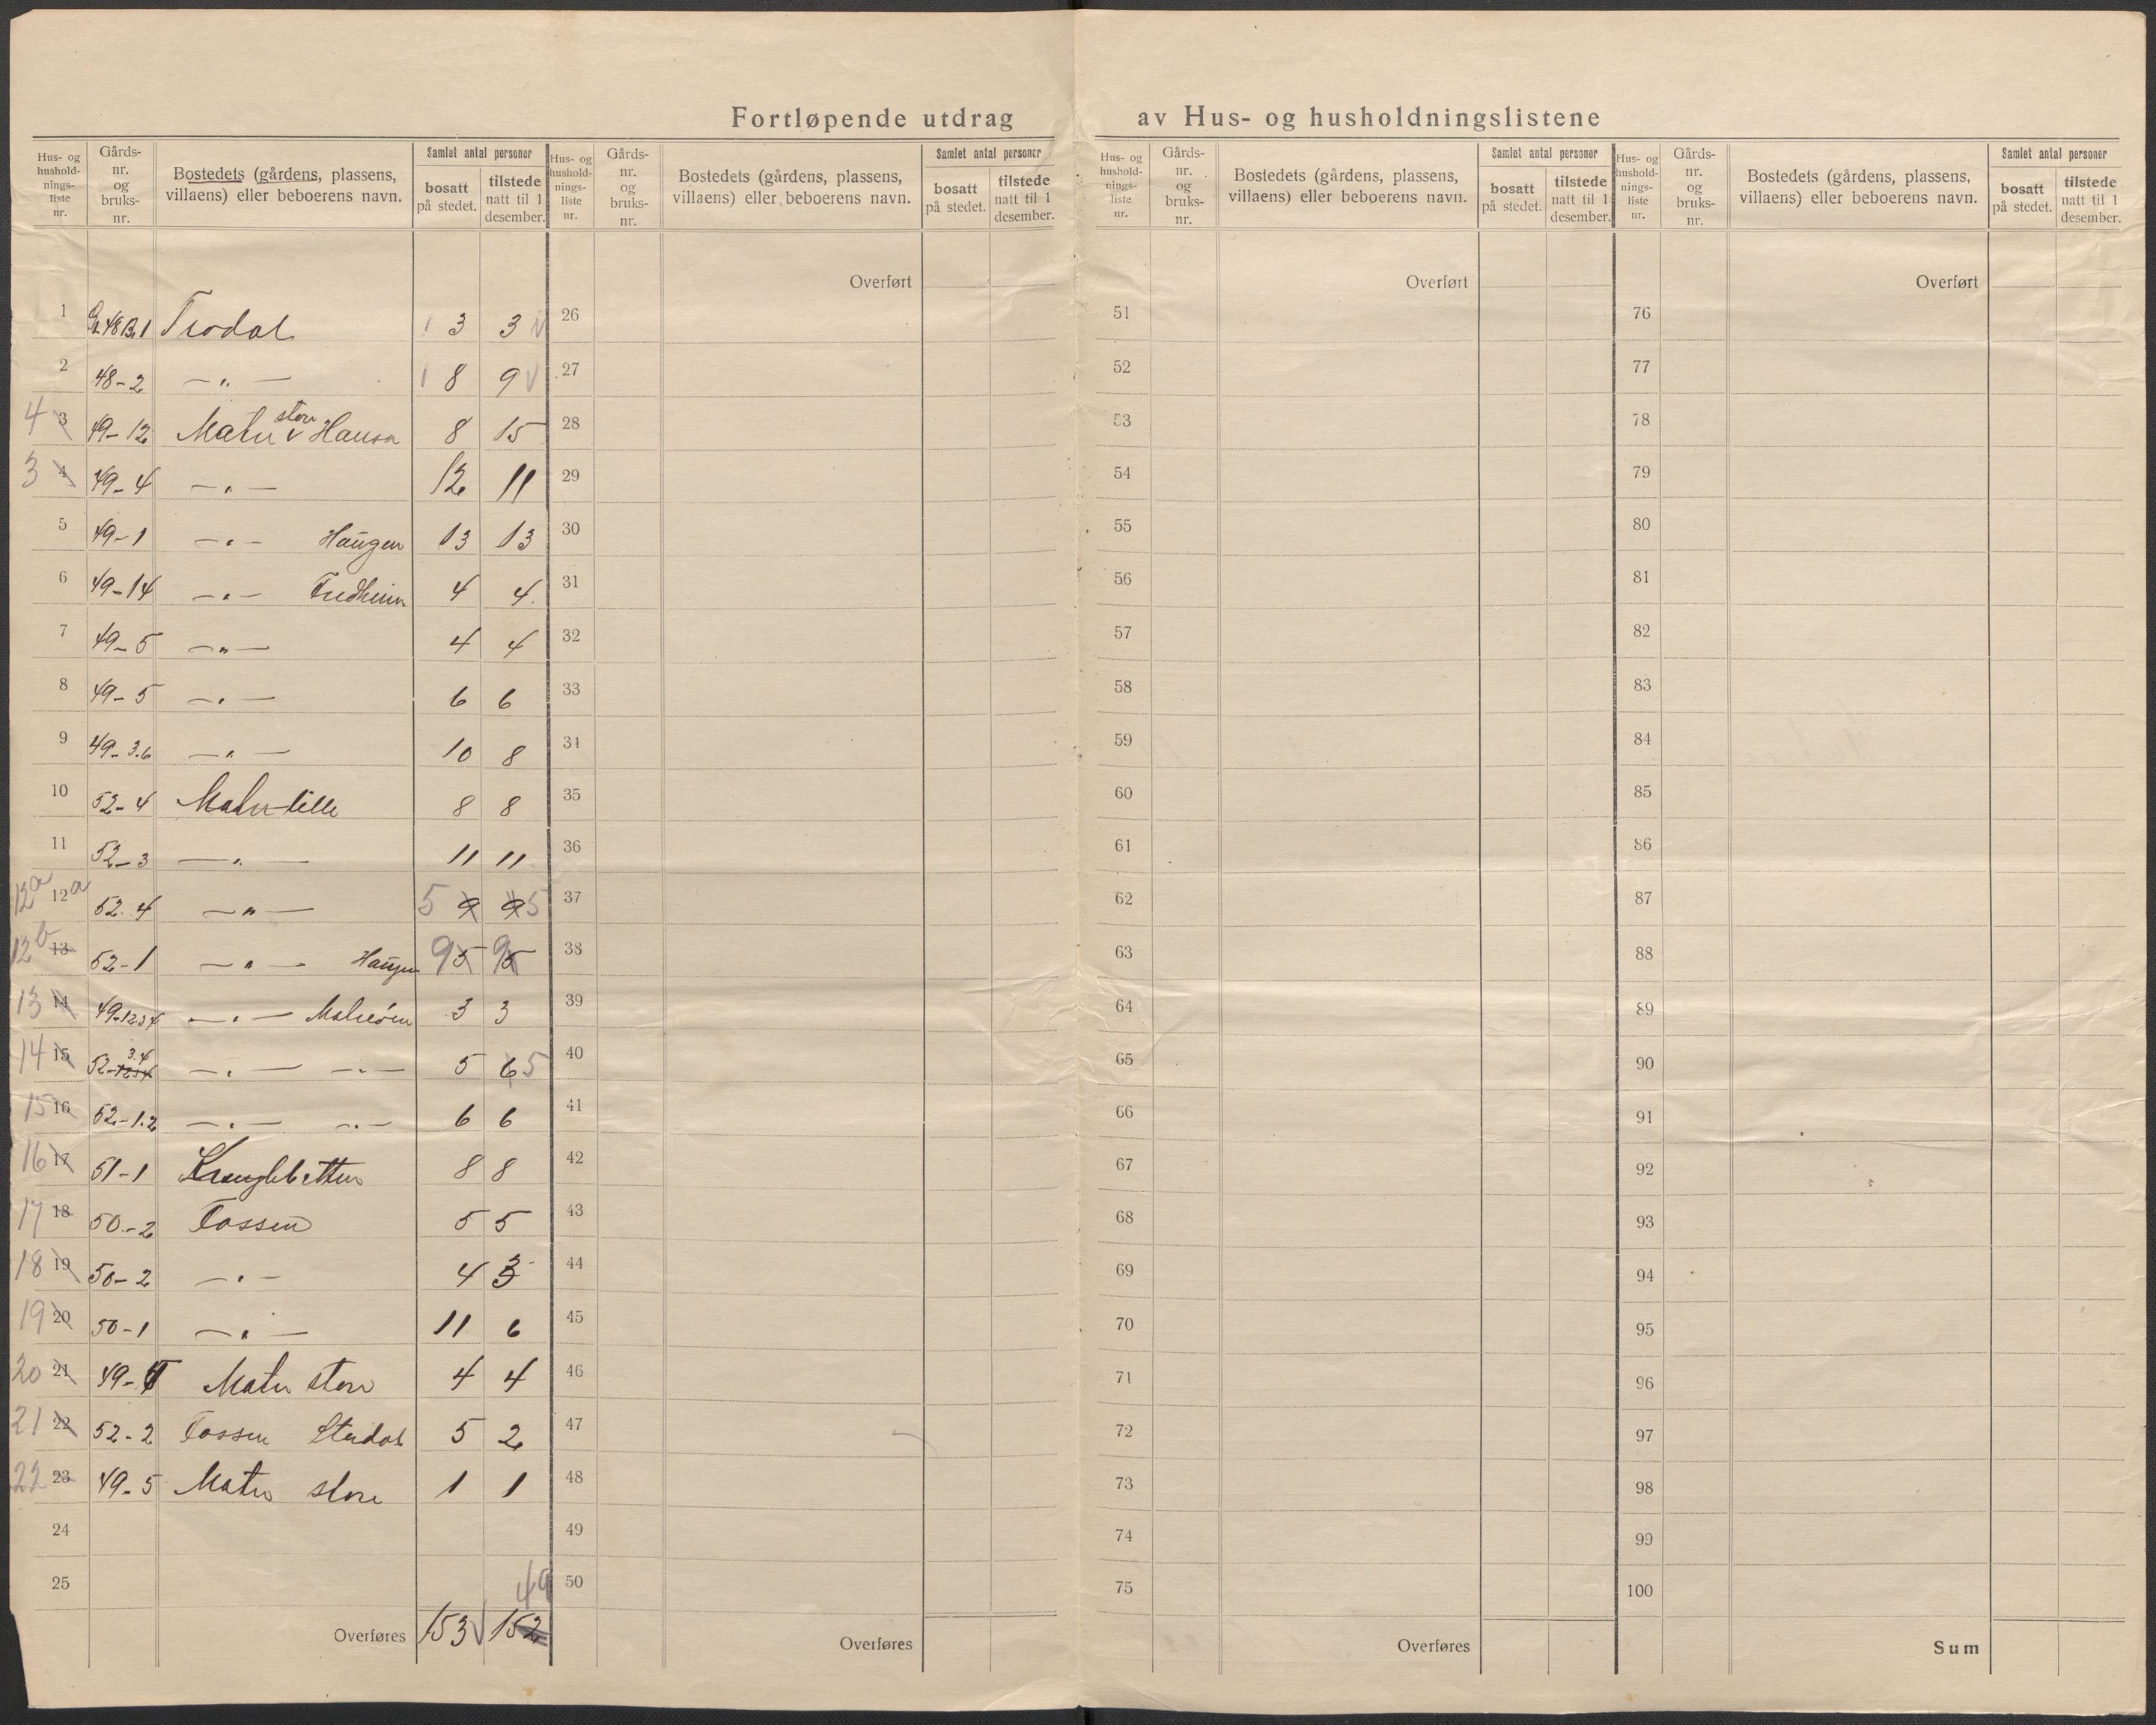 Fortløpende utdrag av Hus- og husholdningslistene
Hus- og hushold-nings-liste nr. Gårds-nr. og bruks-nr. Bostedets (gårdens, plassens, villaens) eller beboerens navn. Samlet antal personer bosatt på stedet. tilstede natt til 1 desember.
Hus- og hushold-nings-liste nr. Gårds-nr. og bruks-nr. Bostedets (gårdens, plassens, villaens) eller beboerens navn. Samlet antal personer bosatt på stedet. tilstede natt til 1 desember.
Hus- og hushold-nings-liste nr. Gårds-nr. og bruks-nr. Bostedets (gårdens, plassens, villaens) eller beboerens navn. Samlet antal personer bosatt på stedet. tilstede natt til 1 desember.
Hus- og hushold-nings-liste nr. Gårds-nr. og bruks-nr. Bostedets (gårdens, plassens, villaens) eller beboerens navn. Samlet antal personer bosatt på stedet. tilstede natt til 1 desember.
Overført Overført Overført
1 G. 48 B. 1 Trodal 3 3 26 51 76
2 48-2 —„— 8 9 27 52 77
4 3 49-12 Matre store Hausa 8 15 28 53 78
3 4 49-4 —„— 12 11 29 54 79
5 49-1 —„— Haugen 13 13 30 55 80
6 49-14 —„— Fredheim 4 4 31 56 81
7 49-5 —„— 4 4 32 57 82
8 49-5 —„— 6 6 33 58 83
9 49-3.6 —„— 10 8 34 59 84
10 52-4 Matre lille 8 8 35 60 85
11 52-3 —„— 11 11 36 61 86
12a 12a 52.4 —„— 5 9 9 5 37 62 87
12b 13 52-1 —„— Haugen 9 5 9 5 38 63 88
13 14 49-1234 —„— Matreøren 3 3 39 64 89
14 15 52-1234 3.4 —„— —„— 5 6 5 40 65 90
15 16 52-1.2 —„— —„— 6 6 41 66 91
16 17 51-1 8 8 42 67 92
17 18 50-2 Fossen 5 5 43 68 93
18 19 50-2 —„— 4 3 44 69 94
19 20 50-1 —„— 11 6 45 70 95
20 21 49- Matre store 4 4 46 71 96
21 22 52-2 Fossen Stordal 5 2 47 72 97
22 23 49-5 Matre store 1 1 48 73 98
24 49 74 99
25 50 75 100
49
Overføres 153 152 Overføres Overføres Sum